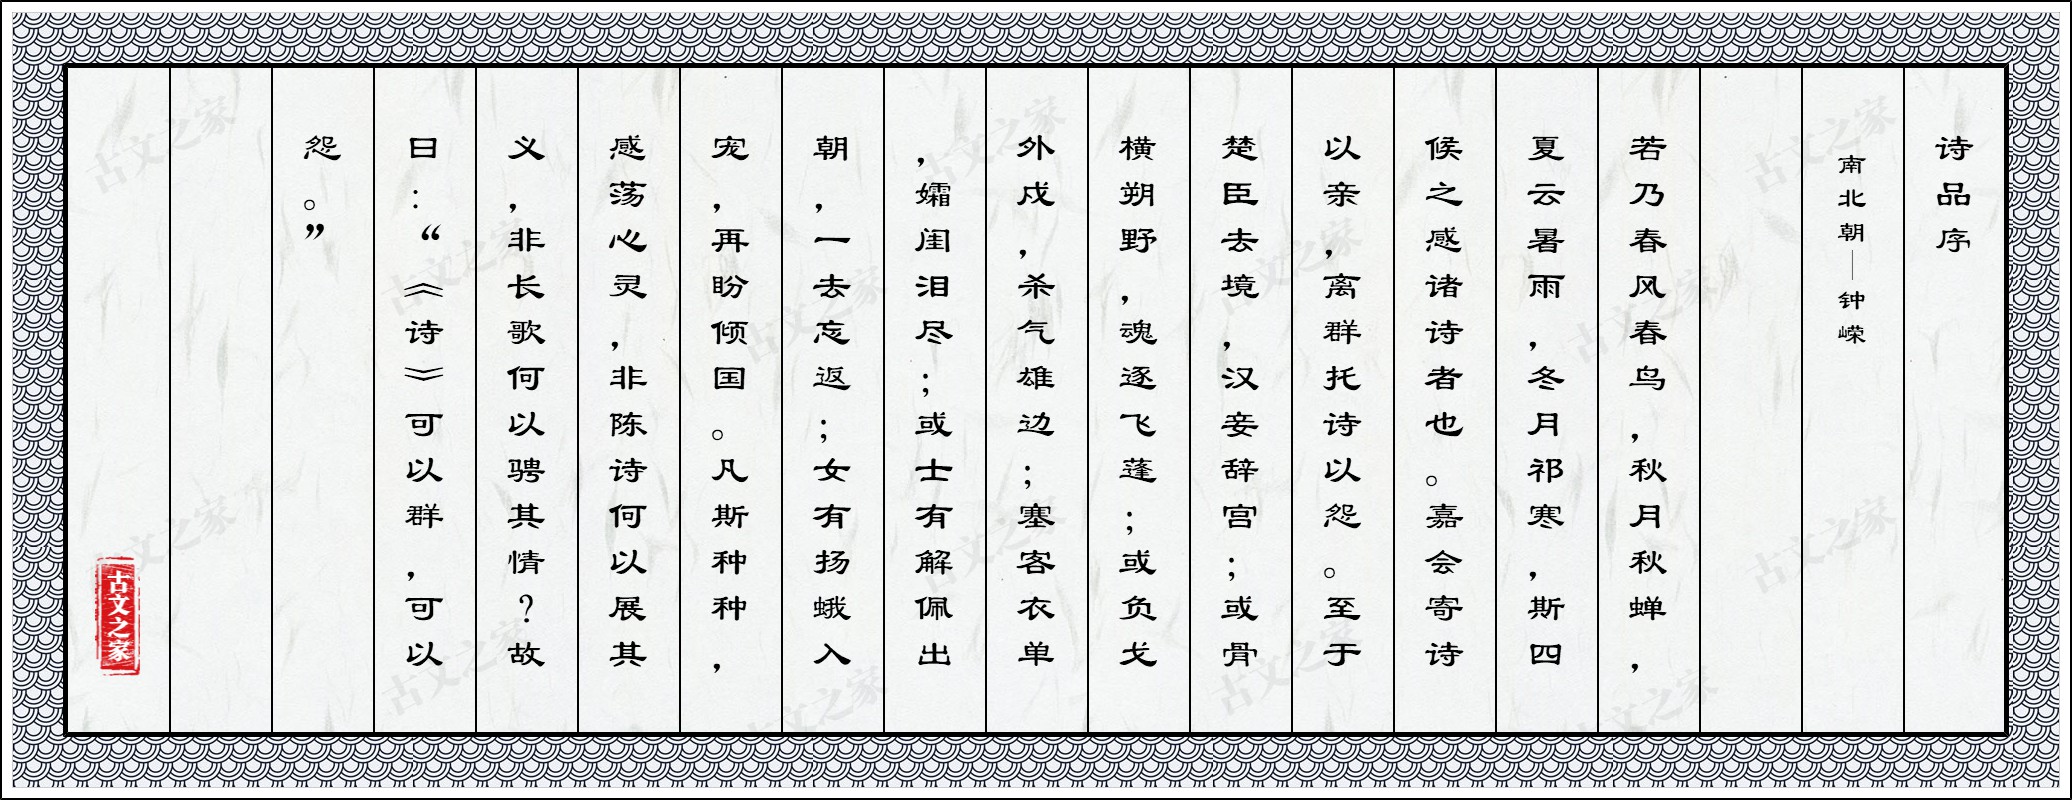 诗品序
南北朝—钟嵘
若乃春风春鸟，秋月秋蝉，
夏云暑雨，冬月祁寒，斯四
候之感诸诗者也。嘉会寄诗
以亲，离群托诗以怨。至于
楚臣去境，汉妾辞宫；或骨
横朔野，魂逐飞蓬；或负戈
外戍，杀气雄边；塞客衣单
，孀闺泪尽；或士有解佩出
朝，一去忘返；女有扬蛾入
宠，再盼倾国。凡斯种种，
感荡心灵，非陈诗何以展其
义，非长歌何以骋其情？故
曰：“《诗》可以群，可以
怨。”
古文之家